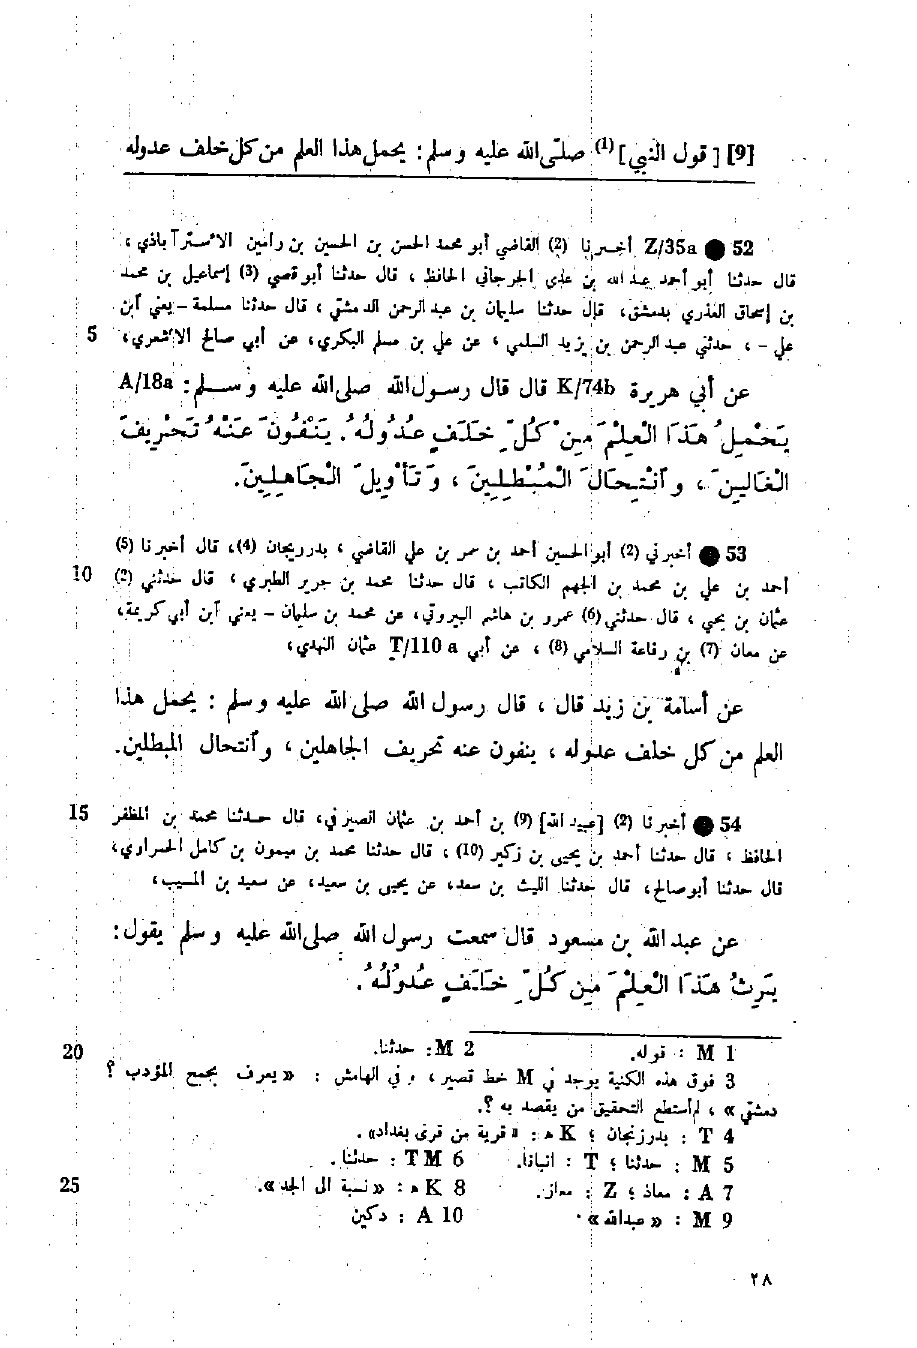 [9] [قول النبي] (1) صلّى الله عليه وسلم: يحمل هذا العلم من كل خلف عدوله
52 ● Z/35a أخبرنا (2) القاضي أبو محمد الحسن بن الحسين بن رامين الاٴستراٰباذي ،
قال حدثنا أبو أحمد عبد الله بن علي الجرجاني الحافظ ، قال حدثنا أبو قصي (3) إسماعيل بن محمد
بن إسحاق العذري بدمشق، قال حدثنا سليمان بن عبد الرحمن الدمشقي ، قال حدثنا مسلمة - يعني أبن
5 علي - ، حدثني عبد الرحمن بن يزيد السلمي ، عن علي بن مسلم البكري، عن أبي صالح الاٴشعري،
عن أبي هريرة K/74b قال قال رسول الله صلى الله عليه وسلم: A/18a
يَحْمِلُ هَذَا الْعِلْمَ مِنْ كُلِّ خَلَفٍ عُدُولُهُ. يَنْفُونَ عَنْهُ تَحْرِيفَ
الْغَالِينَ ، وَٱنْتِحَالَ الْمُبْطِلِينَ ، وَتَأْوِيلَ الْجَاهِلِينَ.
53 ● أخبرني (2) أبو الحسين أحمد بن عمر بن علي القاضي ، بدرريجان (4)، قال أخبرنا (5)
10 أحمد بن علي بن محمد بن الجهم الكاتب ، قال حدثنا محمد بن جرير الطبري ، قال حدثني (2)
عثمان بن يحي ، قال حدثني (6) عمرو بن هاشم البيروتي، عن محمد بن سليمان - يعني أبن أبي كريمة،
عن معان (7) بن رفاعة السلامي (8) ، عن أبي T/110 a عثمان النهدي،
عن أسامة بن زيد قال ، قال رسول الله صلى الله عليه وسلم : يحمل هذا
العلم من كل خلف عدوله ، ينفون عنه تحريف الجاهلين ، وأنتحال المبطلين.
15 54 ● أخبرنا (2) [عبيد الله] (9) بن أحمد بن عثمان الصيرفي، قال حدثنا محمد بن المظفر
الحافظ ، قال حدثنا أحمد بن يحيى بن زكير (10) ، قال حدثنا محمد بن ميمون بن كامل الحمراوي،
قال حدثنا أبو صالح، قال حدثنا الليث بن سعد، عن يحيى بن سعيد، عن سعيد بن المسيب،
عن عبد الله بن مسعود قال سمعت رسول الله صلى الله عليه وسلم يقول:
يَرِثُ هَذَا الْعِلْمَ مِنْ كُلِّ خَلَفٍ عُدُولُهُ.
20 1 M : قوله. 2 M: حدثنا.
3 فوق هذه الكنية يوجد في M خط قصير ، وفي الهامش : « يعرف بجمع المؤدب ؟
دمشقي » ، لم أستطع التحقيق من يقصد به ؟.
4 T : بدرزنجان ؛ K ه : «قرية من قرى بغداد» .
5 M : حدثنا ؛ T : انبانا. 6 TM : حدثنا.
25 7 A : معاذ ؛ Z : معاز. 8 K ه : «نسبة الى الجد».
9 M : «عبدالله» . 10 A : دكين
٢٨